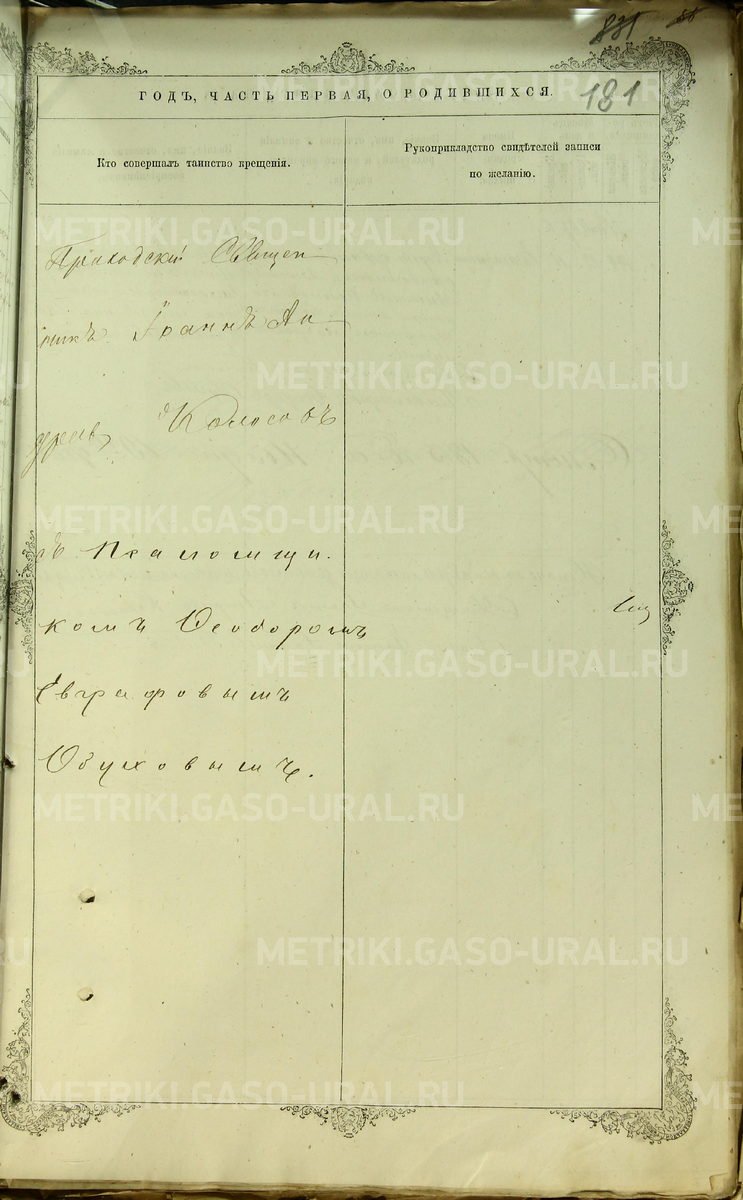 181
ГОДЪ, ЧАСТЬ ПЕРВАЯ, О РОДИВШИХСЯ.
Кто совершалъ таинство крещенія.
Рукоприкладство свидѣтелей записи
по желанію.
Приходскій Священ-
никъ Іоаннъ Ан-
дреевъ Колосовъ
съ Псаломщи-
комъ Ѳеодоромъ
Евграфовымъ
Обуховымъ.
METRIKI.GASO-URAL.RU